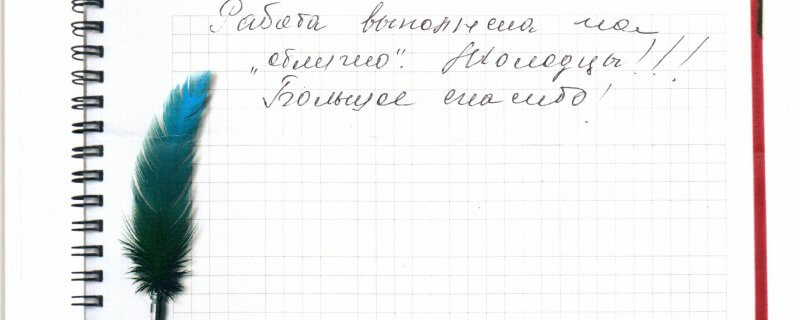 Работа выполнена на
„отлично". Молодцы!!!
Большое спасибо!